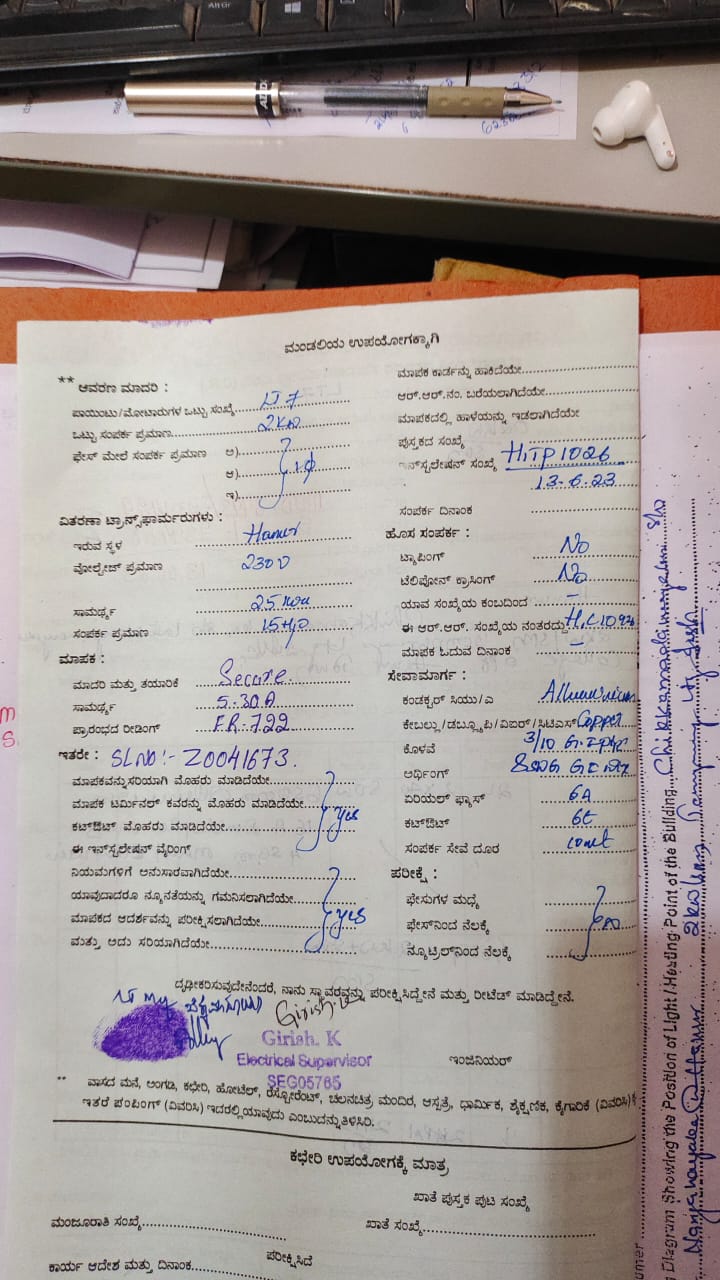 AltGr
ಮಂಡಲಿಯ ಉಪಯೋಗಕ್ಕಾಗಿ
** ಆವರಣ ಮಾದರಿ :
ಪಾಯಿಂಟು/ಮೋಟಾರುಗಳ ಒಟ್ಟು ಸಂಖ್ಯೆ LT 7
ಒಟ್ಟು ಸಂಪರ್ಕ ಪ್ರಮಾಣ 2KW
ಫೇಸ್ ಮೇಲೆ ಸಂಪರ್ಕ ಪ್ರಮಾಣ ಅ)
ಆ) 1ϕ
ಇ)
ವಿತರಣಾ ಟ್ರಾನ್ಸ್‌ಫಾರ್ಮರುಗಳು :
ಇರುವ ಸ್ಥಳ Hanur
ವೋಲ್ಟೇಜ್ ಪ್ರಮಾಣ 230V
ಸಾಮರ್ಥ್ಯ 25
ಸಂಪರ್ಕ ಪ್ರಮಾಣ 15HP
ಮಾಪಕ :
ಮಾದರಿ ಮತ್ತು ತಯಾರಿಕೆ Secure
ಸಾಮರ್ಥ್ಯ 5-30A
ಪ್ರಾರಂಭದ ರೀಡಿಂಗ್ F.R-722
ಇತರೇ : SLNO:- Z0041673.
ಮಾಪಕವನ್ನು ಸರಿಯಾಗಿ ಮೊಹರು ಮಾಡಿದೆಯೇ
ಮಾಪಕ ಟರ್ಮಿನಲ್ ಕವರನ್ನು ಮೊಹರು ಮಾಡಿದೆಯೇ
ಕಟ್‌ಔಟ್ ಮೊಹರು ಮಾಡಿದೆಯೇ yes
ಈ ಇನ್‌ಸ್ಟಲೇಷನ್ ವೈರಿಂಗ್
ನಿಯಮಗಳಿಗೆ ಅನುಸಾರವಾಗಿದೆಯೇ
ಯಾವುದಾದರೂ ನ್ಯೂನತೆಯನ್ನು ಗಮನಿಸಲಾಗಿದೆಯೇ
ಮಾಪಕದ ಆದರ್ಶವನ್ನು ಪರೀಕ್ಷಿಸಲಾಗಿದೆಯೇ yes
ಮತ್ತು ಅದು ಸರಿಯಾಗಿದೆಯೇ
ಮಾಪಕ ಕಾರ್ಡನ್ನು ಹಾಕಿದೆಯೇ
ಆರ್.ಆರ್.ನಂ. ಬರೆಯಲಾಗಿದೆಯೇ
ಮಾಪಕದಲ್ಲಿ ಹಾಳೆಯನ್ನು ಇಡಲಾಗಿದೆಯೇ
ಪುಸ್ತಕದ ಸಂಖ್ಯೆ
ಇನ್‌ಸ್ಟಲೇಷನ್ ಸಂಖ್ಯೆ HTP1026
13-6-23
ಸಂಪರ್ಕ ದಿನಾಂಕ
ಹೊಸ ಸಂಪರ್ಕ :
ಟ್ಯಾಪಿಂಗ್ No
ಟೆಲಿಫೋನ್ ಕ್ರಾಸಿಂಗ್ No
ಯಾವ ಸಂಖ್ಯೆಯ ಕಂಬದಿಂದ –
ಈ ಆರ್.ಆರ್. ಸಂಖ್ಯೆಯ ನಂತರದ್ದು
ಮಾಪಕ ಓದುವ ದಿನಾಂಕ –
ಸೇವಾಮಾರ್ಗ :
ಕಂಡಕ್ಟರ್ ಸಿಯು/ಎ
ಕೇಬಲ್ಲು/ಡಬ್ಲ್ಯೂಪಿ/ವಿಐಆರ್/ಸಿಟಿಎಸ್ Copper
ಕೊಳವೆ 3/10
ಅರ್ಥಿಂಗ್
ಏರಿಯಲ್ ಫ್ಯೂಸ್ 6A
ಕಟ್‌ಔಟ್
ಸಂಪರ್ಕ ಸೇವೆ ದೂರ
ಪರೀಕ್ಷೆ :
ಫೇಸುಗಳ ಮಧ್ಯೆ
ಫೇಸ್‌ನಿಂದ ನೆಲಕ್ಕೆ
ನ್ಯೂಟ್ರಲ್‌ನಿಂದ ನೆಲಕ್ಕೆ
ದೃಢೀಕರಿಸುವುದೇನೆಂದರೆ, ನಾನು ಸ್ಥಾವರವನ್ನು ಪರೀಕ್ಷಿಸಿದ್ದೇನೆ ಮತ್ತು ರೀಟೆಡ್ ಮಾಡಿದ್ದೇನೆ.
Girish.K
Girish. K
Electrical Supervisor
SEG05765
ಇಂಜಿನಿಯರ್
** ವಾಸದ ಮನೆ, ಅಂಗಡಿ, ಕಛೇರಿ, ಹೋಟೆಲ್, ರೆಸ್ಟೋರೆಂಟ್, ಚಲನಚಿತ್ರ ಮಂದಿರ, ಆಸ್ಪತ್ರೆ, ಧಾರ್ಮಿಕ, ಶೈಕ್ಷಣಿಕ, ಕೈಗಾರಿಕೆ (ವಿವರಿಸಿ)
ಇತರೆ ಪಂಪಿಂಗ್ (ವಿವರಿಸಿ) ಇದರಲ್ಲಿ ಯಾವುದು ಎಂಬುದನ್ನು ತಿಳಿಸಿರಿ.
ಕಛೇರಿ ಉಪಯೋಗಕ್ಕೆ ಮಾತ್ರ
ಖಾತೆ ಪುಸ್ತಕ ಪುಟ ಸಂಖ್ಯೆ
ಮಂಜೂರಾತಿ ಸಂಖ್ಯೆ
ಖಾತೆ ಸಂಖ್ಯೆ
ಪರೀಕ್ಷಿಸಿದೆ
ಕಾರ್ಯ ಆದೇಶ ಮತ್ತು ದಿನಾಂಕ
Diagram Showing the Position of Light / Heating Point of the Building